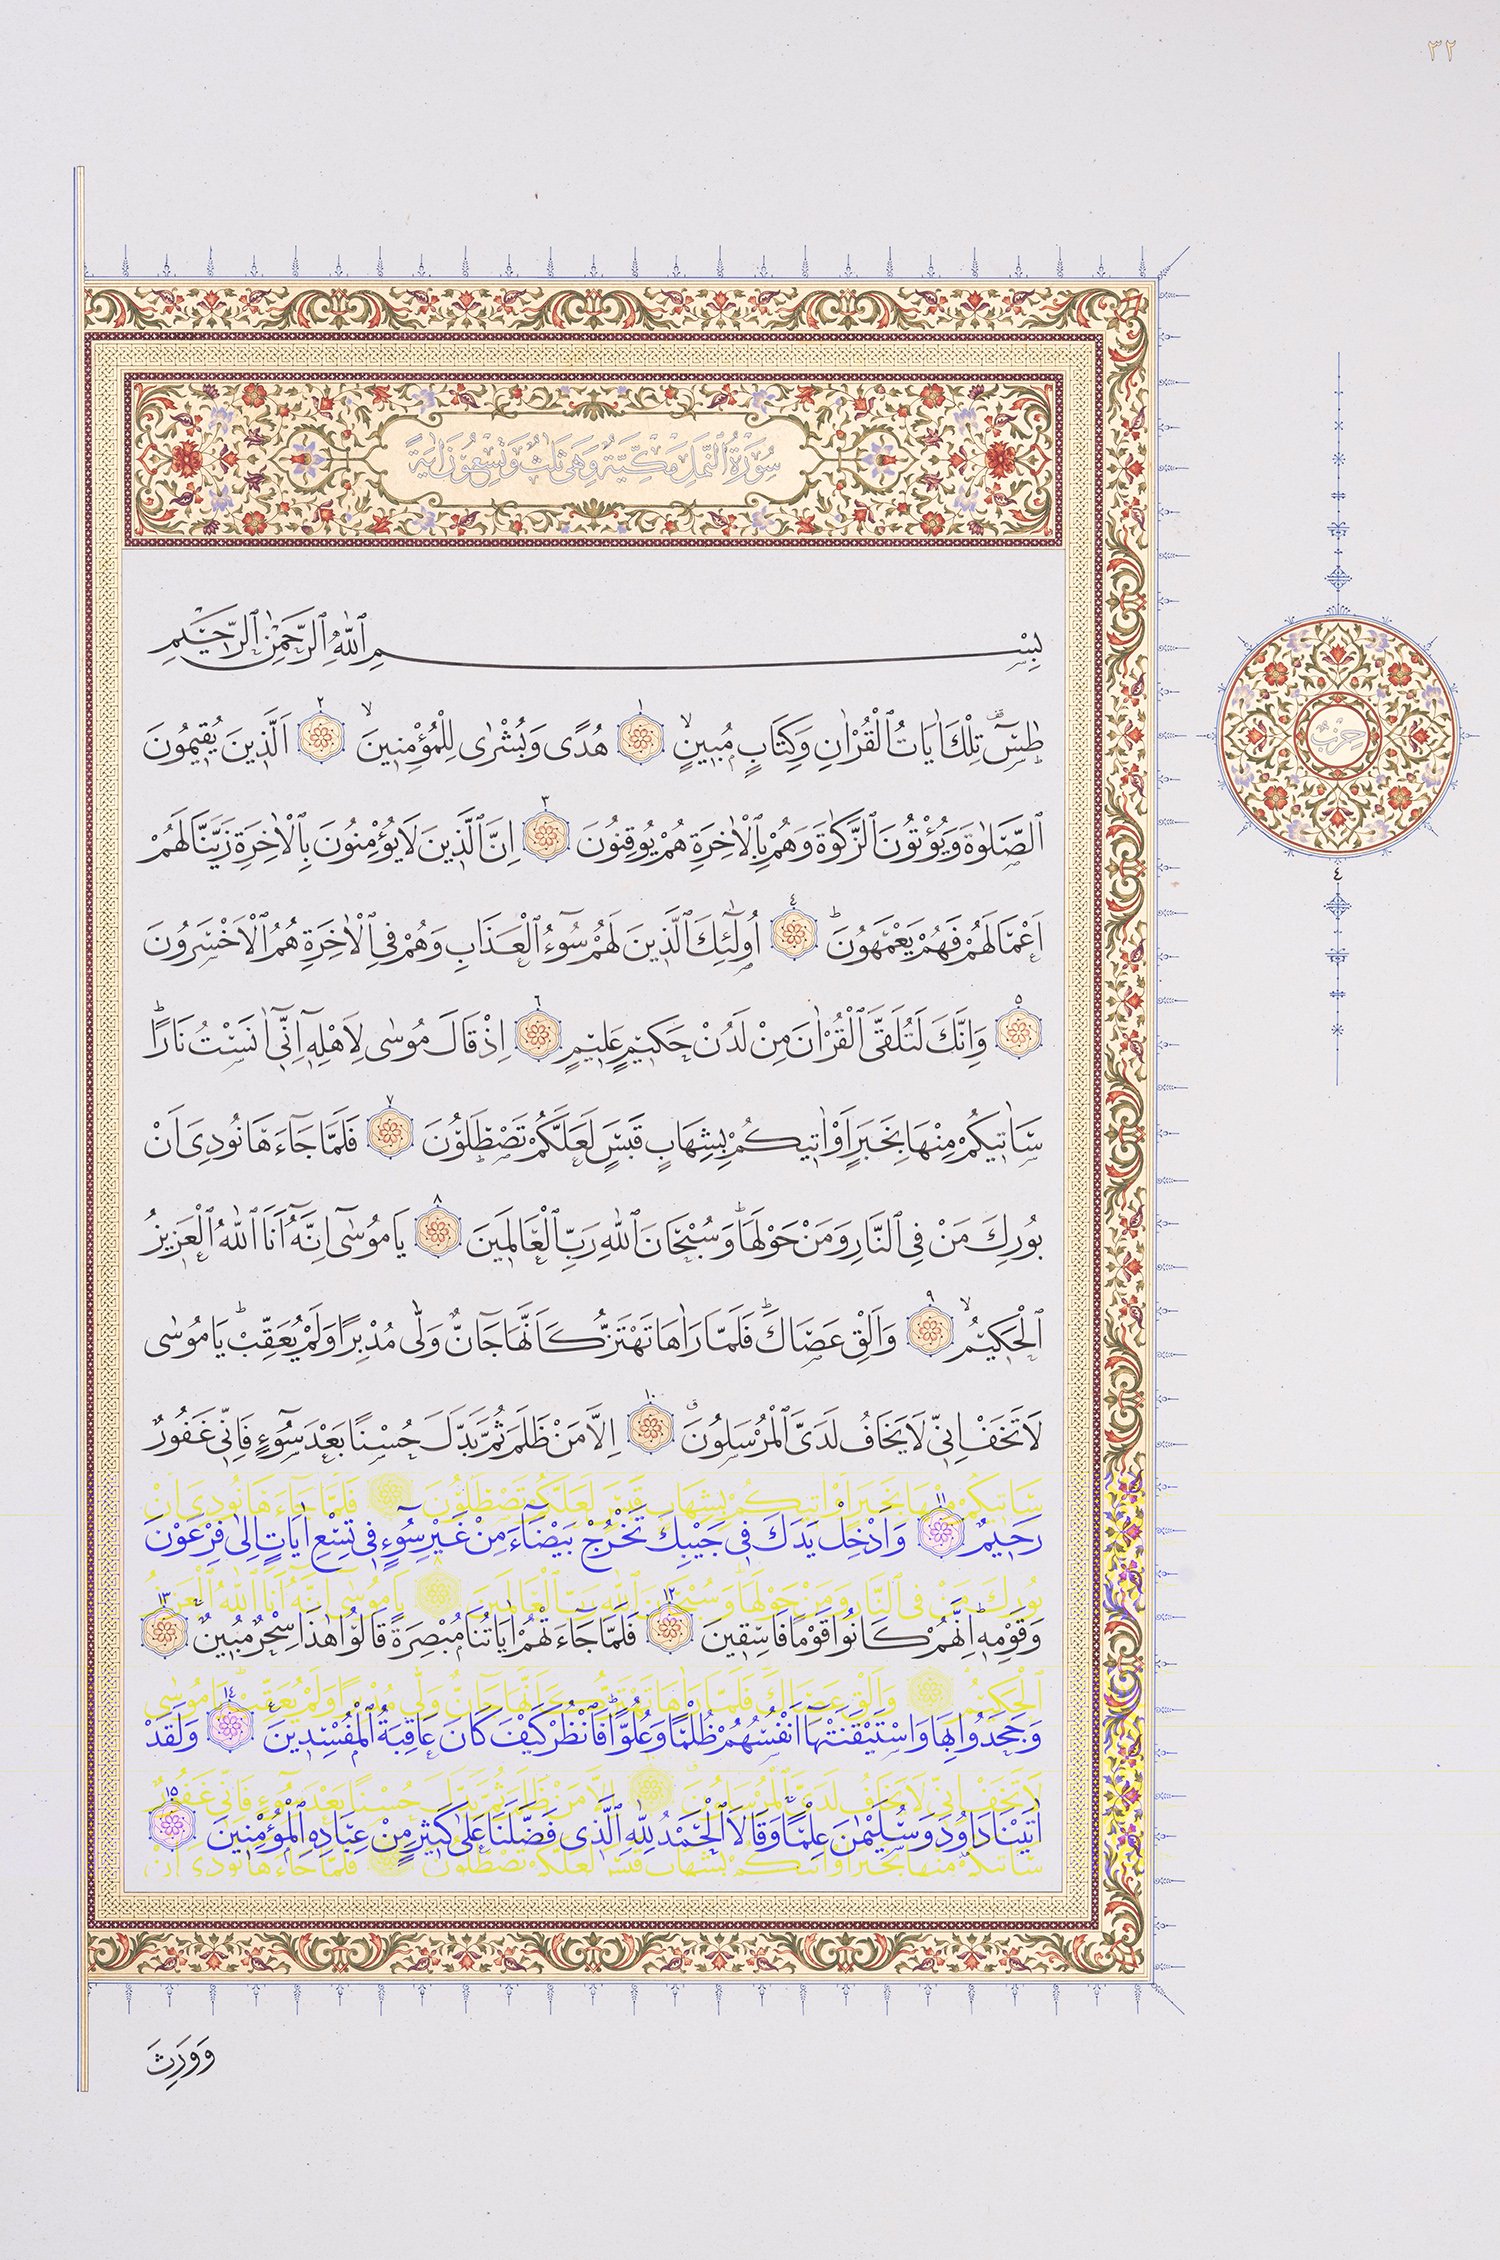 ٣٢
سُورَةُ ٱلنَّمْلِ مَكِّيَّةٌ وَهِيَ ثَلٰثٌ وَتِسْعُونَ اٰيَةً
بِسْمِ ٱللّٰهِ ٱلرَّحْمٰنِ ٱلرَّحِيمِ
طٰسٓ تِلْكَ اٰيَاتُ ٱلْقُرْاٰنِ وَكِتَابٍ مُبِينٍۙ ١ هُدًى وَبُشْرٰى لِلْمُؤْمِنِينَۙ ٢ اَلَّذِينَ يُقِيمُونَ
ٱلصَّلٰوةَ وَيُؤْتُونَ ٱلزَّكٰوةَ وَهُمْ بِٱلْاٰخِرَةِ هُمْ يُوقِنُونَ ٣ اِنَّ ٱلَّذِينَ لَا يُؤْمِنُونَ بِٱلْاٰخِرَةِ زَيَّنَّا لَهُمْ
اَعْمَالَهُمْ فَهُمْ يَعْمَهُونَۜ ٤ اُولٰٓئِكَ ٱلَّذِينَ لَهُمْ سُٓوءُ ٱلْعَذَابِ وَهُمْ فِي ٱلْاٰخِرَةِ هُمُ ٱلْاَخْسَرُونَ
٥ وَاِنَّكَ لَتُلَقَّى ٱلْقُرْاٰنَ مِنْ لَدُنْ حَكِيمٍ عَلِيمٍ ٦ اِذْ قَالَ مُوسٰى لِاَهْلِهٓ اِنّٓي اٰنَسْتُ نَارًاۜ
سَاٰتِيكُمْ مِنْهَا بِخَبَرٍ اَوْ اٰتِيكُمْ بِشِهَابٍ قَبَسٍ لَعَلَّكُمْ تَصْطَلُونَ ٧ فَلَمَّا جَٓاءَهَا نُودِيَ اَنْ
بُورِكَ مَنْ فِي ٱلنَّارِ وَمَنْ حَوْلَهَاۜ وَسُبْحَانَ ٱللّٰهِ رَبِّ ٱلْعَالَمِينَ ٨ يَا مُوسٰٓى اِنَّهُٓ اَنَا ٱللّٰهُ ٱلْعَزِيزُ
ٱلْحَكِيمُۙ ٩ وَاَلْقِ عَصَاكَۜ فَلَمَّا رَاٰهَا تَهْتَزُّ كَاَنَّهَا جَٓانٌّ وَلّٰى مُدْبِرًا وَلَمْ يُعَقِّبْۜ يَا مُوسٰى
لَا تَخَفْ اِنّي لَا يَخَافُ لَدَيَّ ٱلْمُرْسَلُونَۗ ١٠ اِلَّا مَنْ ظَلَمَ ثُمَّ بَدَّلَ حُسْنًا بَعْدَ سُٓوءٍ فَاِنّي غَفُورٌ
رَحِيمٌ ١١ وَاَدْخِلْ يَدَكَ فِي جَيْبِكَ تَخْرُجْ بَيْضَٓاءَ مِنْ غَيْرِ سُٓوءٍ فِي تِسْعِ اٰيَاتٍ اِلٰى فِرْعَوْنَ
وَقَوْمِهٖۜ اِنَّهُمْ كَانُوا قَوْمًا فَاسِقِينَ ١٢ فَلَمَّا جَٓاءَتْهُمْ اٰيَاتُنَا مُبْصِرَةً قَالُوا هٰذَا سِحْرٌ مُبِينٌۚ ١٣
وَجَحَدُوا بِهَا وَاسْتَيْقَنَتْهَٓا اَنْفُسُهُمْ ظُلْمًا وَعُلُوًّاۜ فَٱنْظُرْ كَيْفَ كَانَ عَاقِبَةُ ٱلْمُفْسِدِينَ۟ ١٤ وَلَقَدْ
اٰتَيْنَا دَاوُدَ وَسُلَيْمٰنَ عِلْمًاۚ وَقَالَا ٱلْحَمْدُ لِلّٰهِ ٱلَّذِي فَضَّلَنَا عَلٰى كَثِيرٍ مِنْ عِبَادِهِ ٱلْمُؤْمِنِينَ ١٥
حِزْبٌ
٤
وَوَرِثَ